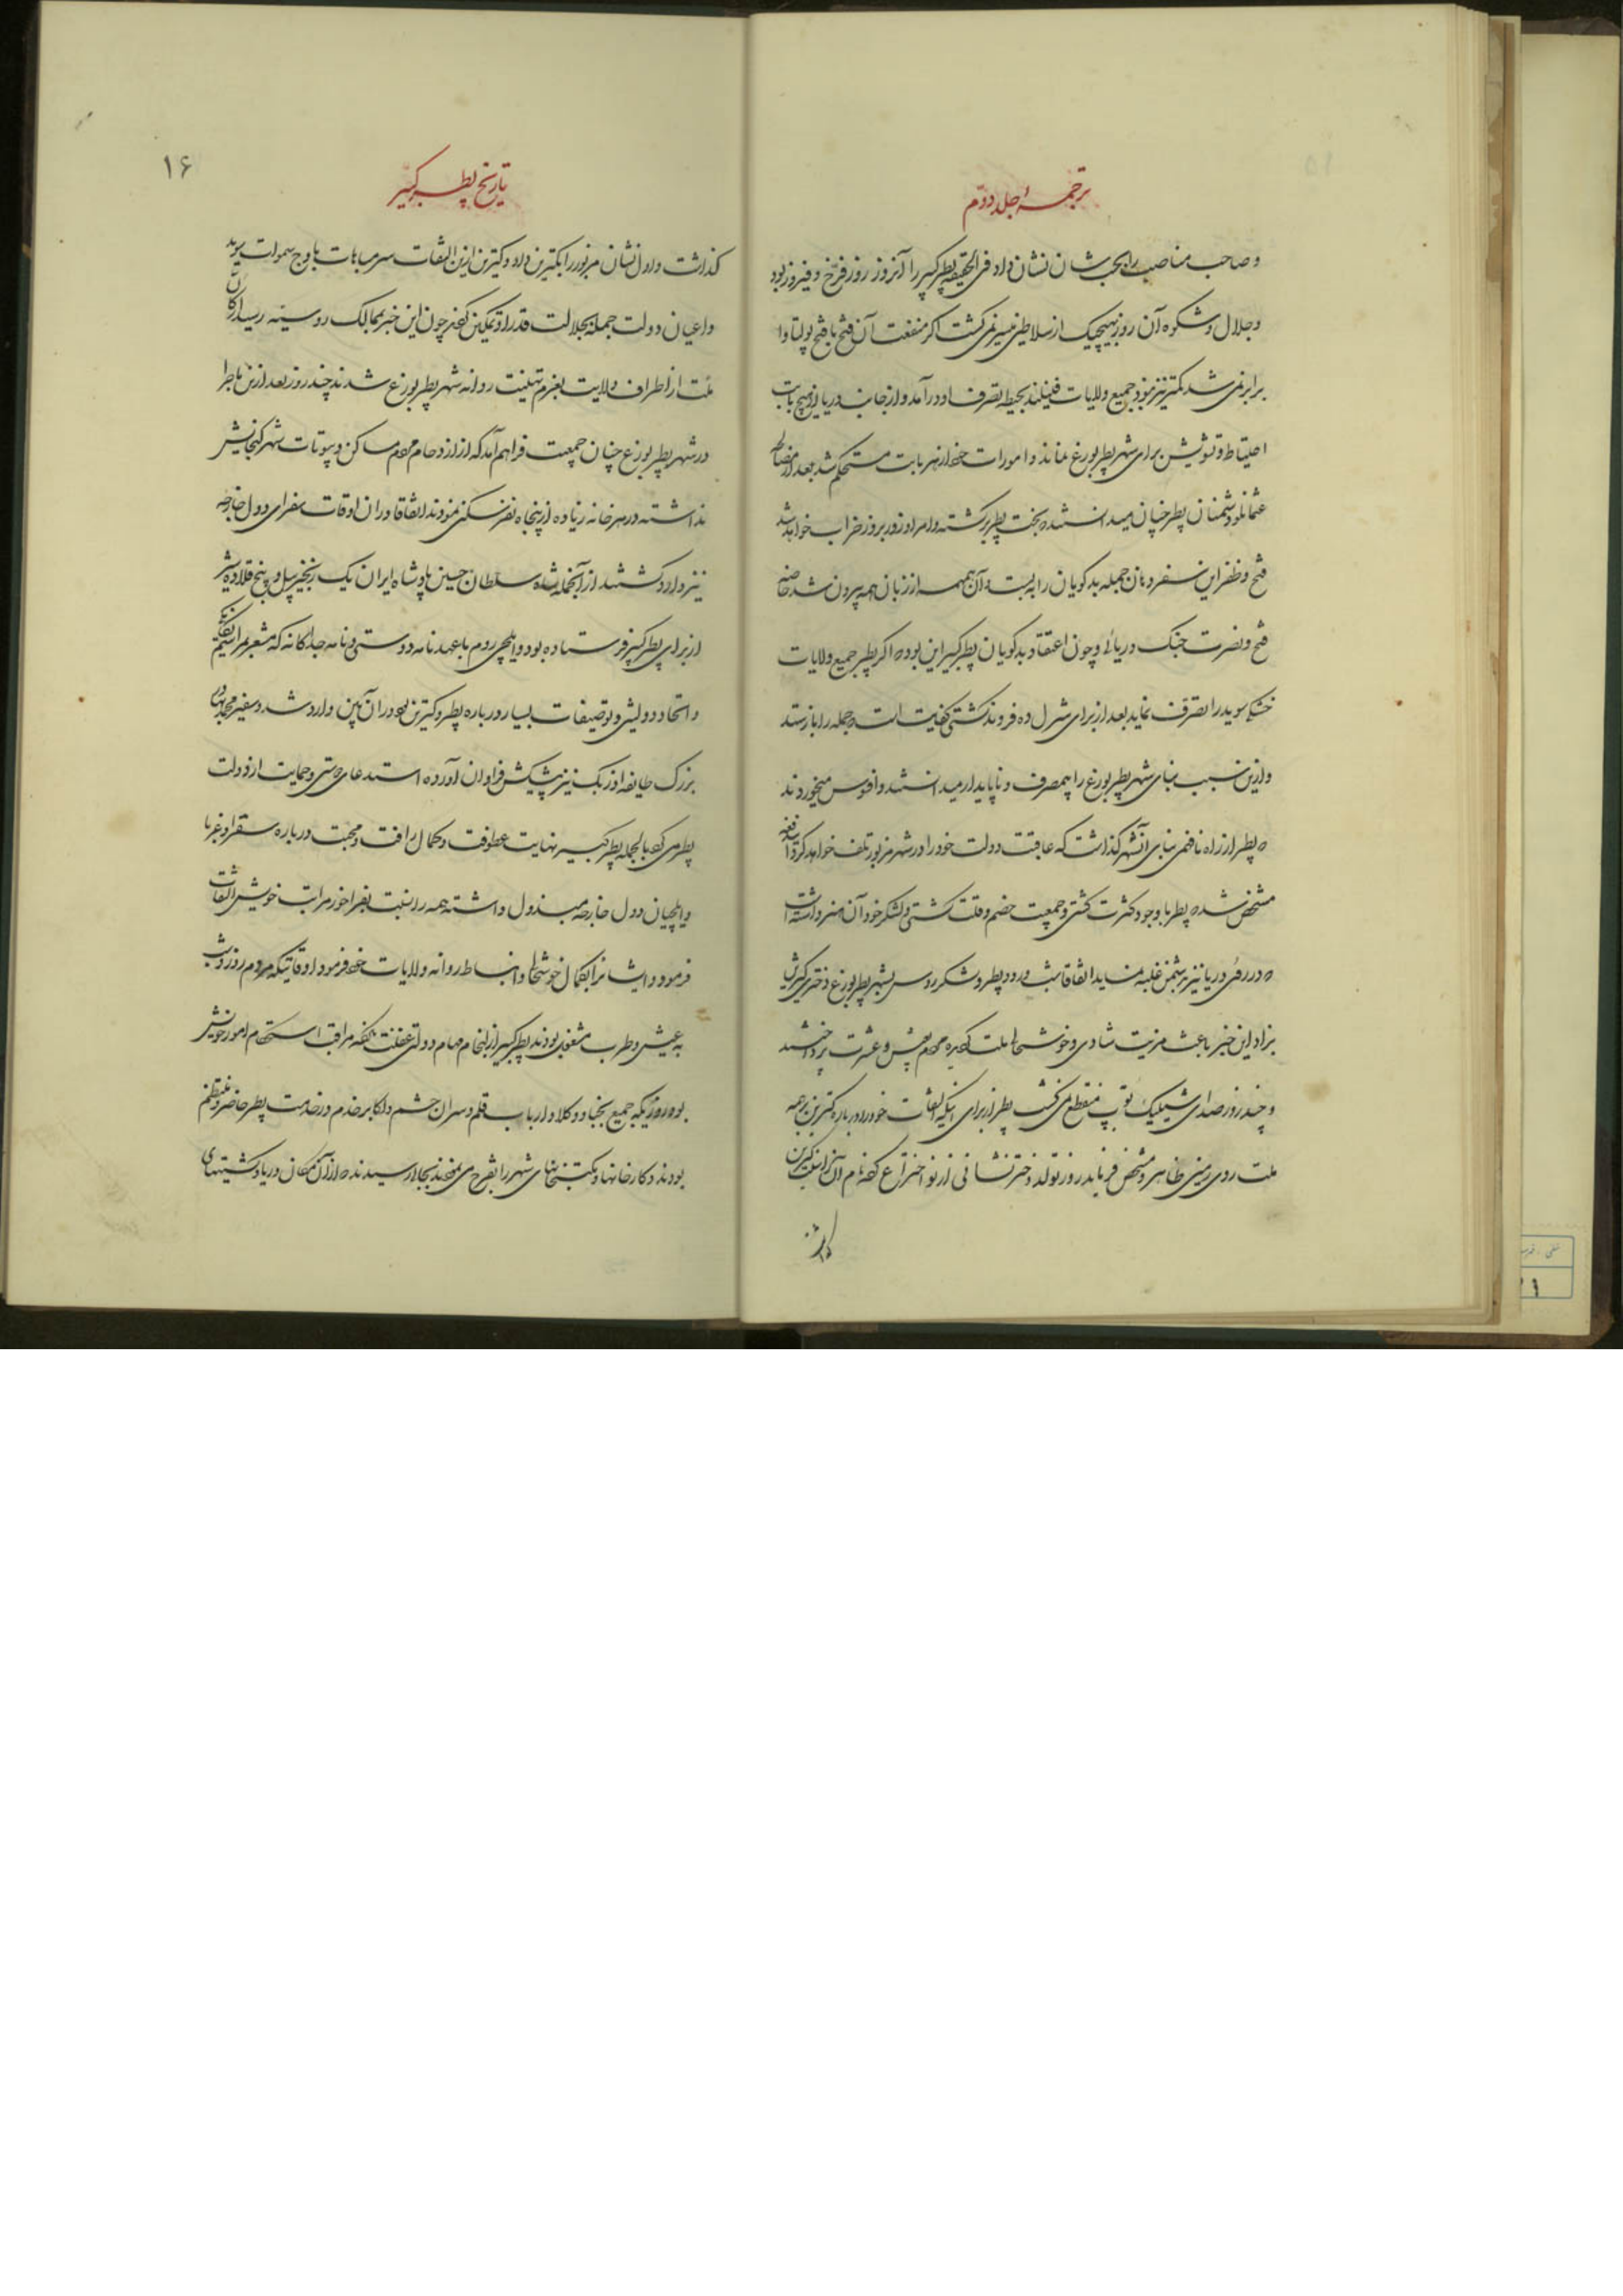 ترجمهٔ جلد دوّم
و صاحب مناصب را بحسب شان نشان داد فی الحقیقه پطر کبیر را آنروز روز فرّخ و فیروز بود
و جلال و شکوه آن روز بهیچیک از سلاطین میسر نمی کشت اکر منفعت آن فتح با فتح پولتاوا
برابر نمی شد کمتر نیز نبود جمیع ولایات فینلند بحیطه تصرف او درآمد و از جانب دریا از هیچ بابت
احتیاط و تشویش برای شهر پطر بورغ نماند و امورات خود از هر بابت مستحکم شد بعد از مصالحه
عثمانلو دشمنان پطر چنان میدانستند که بخت پطر برکشته و امر او روز بروز خراب خواهد شد
فتح و ظفر این سفر دهان جمله بدکویان را به بست آن همهمه از زبان همه بیرون شد خاصه
فتح و نصرت جنک دریا و چون اعتقاد بدکویان پطر کبیر این بود که اکر پطر جمیع ولایات
خشکی سوید را تصرف نماید بعد از برای شرل ده فروند کشتی کفایت است که جمله را باز ستد
و ازین سبب بنای شهر پطر بورغ را بیمصرف و ناپایدار میدانستند و افسوس میخوردند
که پطر از راه نافهمی بنای آنشهر کذاشت که عاقبت دولت خود را در شهر مزبور تلف خواهد کرد ایندفعه
مشخص شد که پطر با وجود کثرت کشتی و جمعیت خصم و قلت کشتی و لشکر خود آن هنر داشته است
که در روی دریا نیز بر دشمن غلبه نماید اتفاقا شب ورود پطر و لشکر روس بشهر پطر بورغ دختری کترین
بزاد این خبر باعث مزیت شادی و خوشحالی ملت کردیده مردم بعیش و عشرت پرداختند
و چند روز صدای شیلیک توپ منقطع نمی کشت پطر از برای اینکه التفات خود را درباره کترین بر همه
ملت روی زمین ظاهر و مشخص فرماید روز تولد دختر نشانی از نو اختراع کرده نام آن نشان کترین
کذاشت
تاریخ پطر کبیر
۱۶
کذاشت و اول نشان مزبور را بکترین داد و کترین ازین التفات سر مباهات باوج سموات سود
و اعیان دولت جمله بجلالت قدر او تمکین کردند چون این خبر بممالک روسیه رسید ارکان
ملت از اطراف ولایت بعزم تهنیت روانه شهر پطر بورغ شدند چند روز بعد ازین ماجرا
در شهر پطر بورغ چنان جمعیت فراهم آمد که از ازدحام مردم مساکن و بیوتات شهر کنجایش
نداشته در هر خانه زیاده از پنجاه نفر سکنی نمودند اتفاقا در ان اوقات سفرای دول خارجه
نیز وارد کشتند از آنجمله شاه سلطان حسین پادشاه ایران یک زنجیر پیل و پنج قلاده شیر
از برای پطر کبیر فرستاده بود و ایلچی روم با عهدنامه دوستی و نامه جداکانه که مشعر بمراسم
و اتحاد دولتین و توصیفات بسیار درباره پطر و کترین بود در ان آئین وارد شد و سفیر محمد بهادر
بزرک طایفه اوزبک نیز پیشکش فراوان آورده استدعای دوستی و حمایت از دولت
پطر می کرد بالجمله پطر کبیر نهایت عطوفت و کمال رافت و محبت درباره سفرا و غربا
و ایلچیان دول خارجه مبذول داشته همه را نسبت بفراخور مراتب خویش التفات
فرمود و ایشانرا بکمال خوشحالی و انبساط روانه ولایات خود فرمود اوقاتیکه مردم روز و شب
به عیش و طرب مشغول بودند پطر کبیر از انجام مهام دولتی غفلت نکرده مراقب استحکام امور خویش
بود روزیکه جمیع نجبا و وکلا و ارباب قلم و سران حشم و اکابر خدم در خدمت پطر حاضر و منتظم
بودند و کارخانها و مکتبخانهای شهر را تفرج می نمودند بجائی رسیدند که از آن مکان دریا و کشتیهای